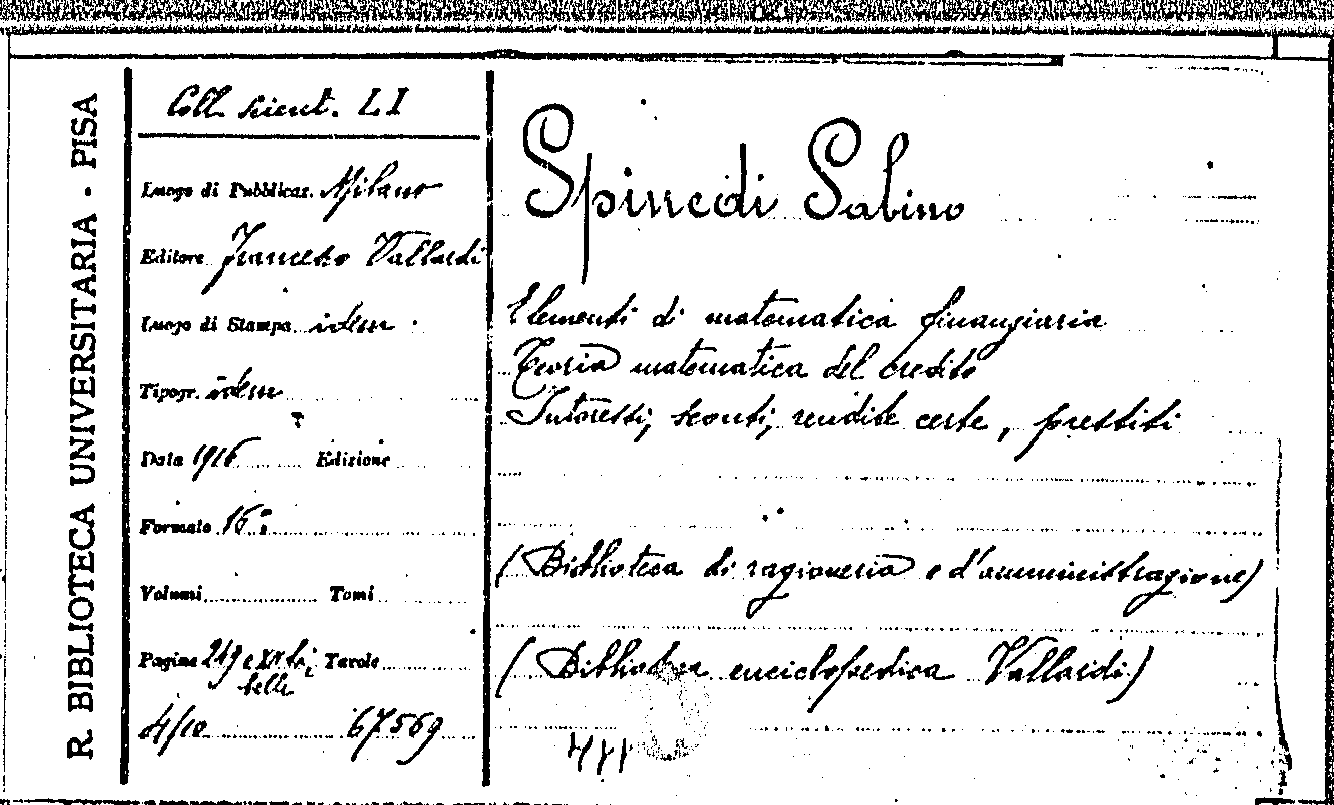 R. BIBLIOTECA UNIVERSITARIA - PISA
Coll. scient. LI
Luogo di Pubblicaz. Milano
Editore Francesco Vallardi
Luogo di Stampa idem
Tipogr. idem
Data 1916 Edizione
Formato 16°
Volumi Tomi
Pagine 219 e Tavole
4/10 67569
Spinedi Sabino
Elementi di matematica finanziaria
Teoria matematica del credito
Interessi, sconti, rendite certe, prestiti
(Biblioteca di ragioneria e d'amministrazione)
(Biblioteca enciclopedica Vallardi)